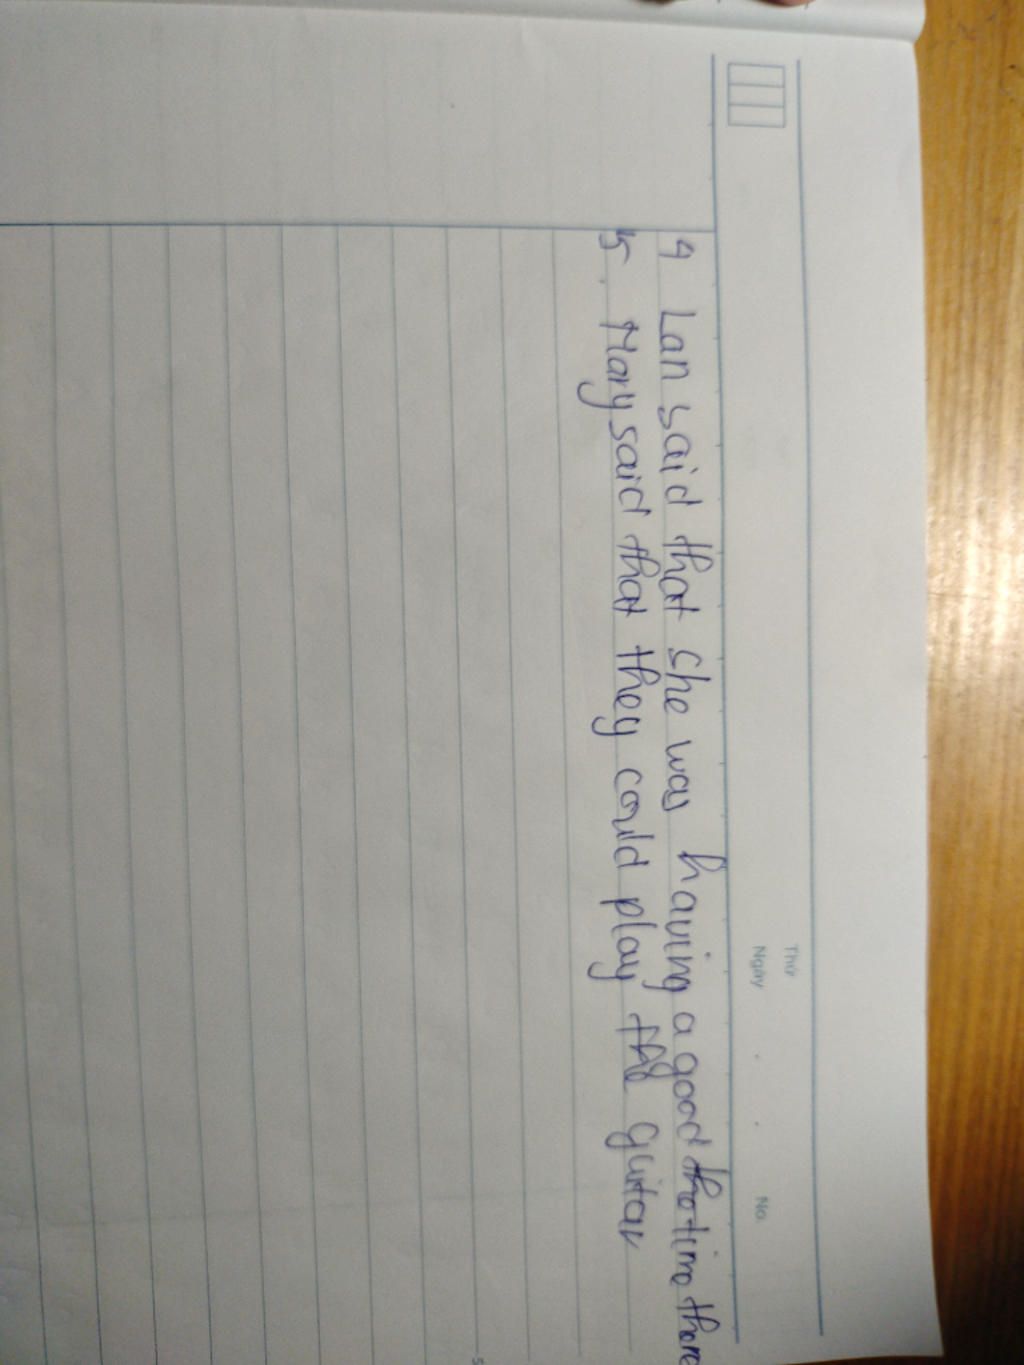 Thứ
Ngày . . No.
4 Lan said that she was having a good the time there
5. Mary said that they could play the guitar